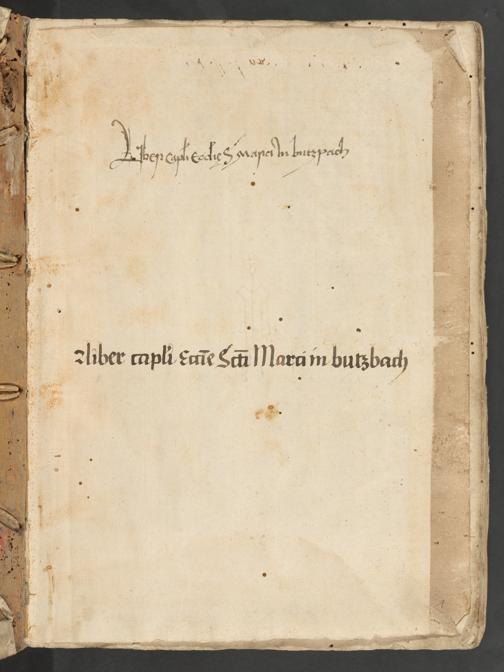 Liber capli Ecclie S Marci In butzpach
Liber capli Eccīe Sctī Marci in butzbach